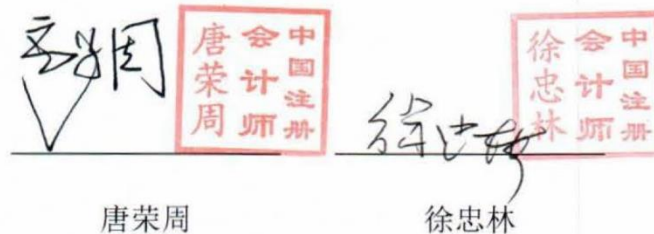 唐荣周
中国注册
会计师
唐荣周
徐忠林
中国注册
会计师
徐忠林
唐荣周 徐忠林